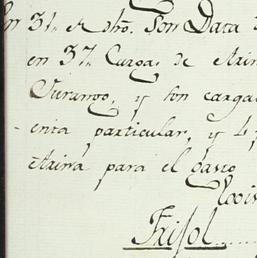 En 31. de dho. Son Data
en 37. Cargas de Arin
Durango, y son carga
enta particular, y 4
Arina para el gasto
Frisol